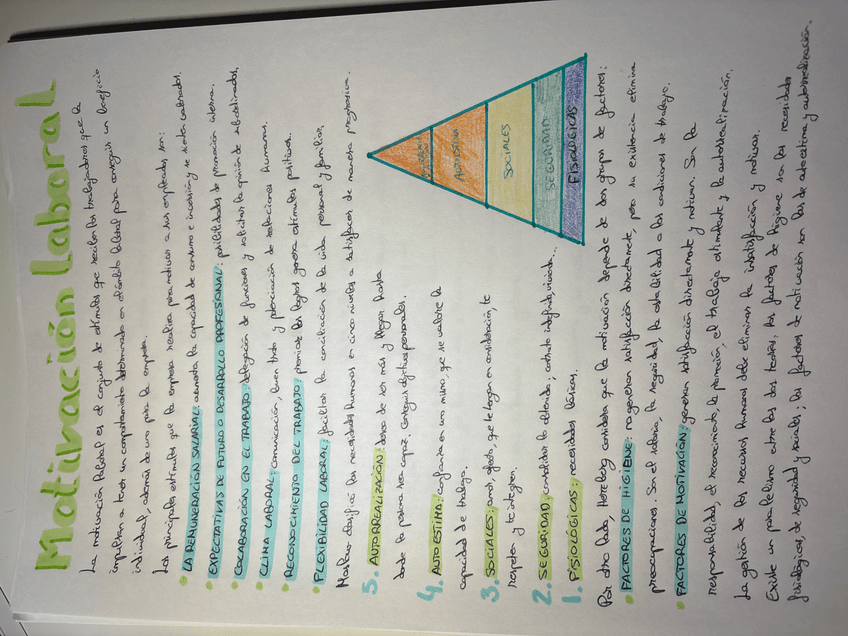 Motivación laboral
La motivación laboral es el conjunto de estímulos que reciben los trabajadores que le
impulsan a tener un comportamiento determinado en el ámbito laboral para conseguir un beneficio
individual, además de uno para la empresa.
Los principales estímulos que la empresa realiza para motivar a sus empleados, son:
• LA REMUNERACIÓN SALARIAL: aumenta la capacidad de consumo e inversión y se sienten valorados.
• EXPECTATIVAS DE FUTURO O DESARROLLO PROFESIONAL: posibilidades de promoción interna.
• COLABORACIÓN EN EL TRABAJO: delegación de funciones y solicitar la opinión de subordinados.
• CLIMA LABORAL: comunicación, buen trato y potenciación de relaciones humanas.
• RECONOCIMIENTO DEL TRABAJO: premiar los logros genera estímulos positivos.
• FLEXIBILIDAD LABORAL: facilitar la conciliación de la vida personal y familiar.
Maslow clasificó las necesidades humanas en cinco niveles a satisfacer de manera progresiva.
5. AUTORREALIZACIÓN: deseo de ser más y llegar hasta
donde la persona sea capaz. Conseguir objetivos personales.
4. AUTOESTIMA: confianza en uno mismo, que se valore la
capacidad de trabajo.
3. SOCIALES: amor, afecto, que te tengan en consideración, te
respeten y te integren.
2. SEGURIDAD: consolidar lo obtenido; contrato indefinido, vivienda...
1. FISIOLÓGICAS: necesidades básicas.
AUTOESTIMA
SOCIALES
SEGURIDAD
FISIOLÓGICAS
Por otro lado, Herzberg considera que la motivación depende de dos grupos de factores:
• FACTORES DE HIGIENE: no generan satisfacción directamente, pero su existencia elimina
preocupaciones. Son el salario, la seguridad, la estabilidad o las condiciones de trabajo.
• FACTORES DE MOTIVACIÓN: generan satisfacción directamente y motivan. Son la
responsabilidad, el reconocimiento, la promoción, el trabajo estimulante y la autorrealización.
La gestión de los recursos humanos debe eliminar la insatisfacción y motivar.
Existe un paralelismo entre las dos teorías, los factores de higiene son las necesidades
fisiológicas, de seguridad y sociales; los factores de motivación son las de autoestima y autorrealización.